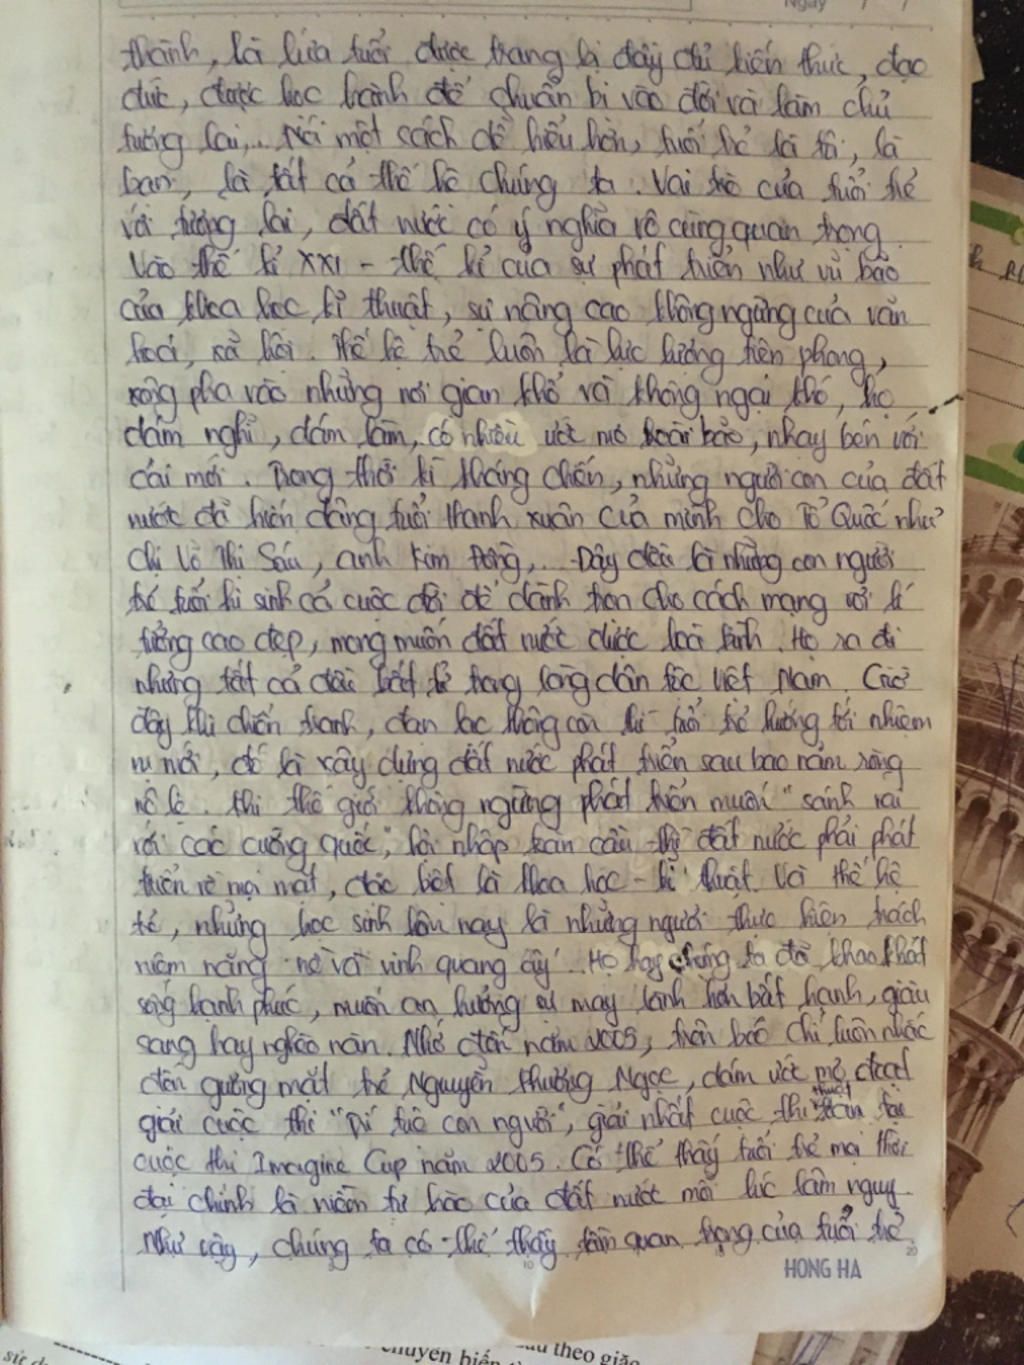 Ngày / /
thành, là lứa tuổi được trang bị đầy đủ kiến thức, đạo
đức, được học hành để chuẩn bị vào đời và làm chủ
tương lai,.. Nói một cách dễ hiểu hơn, tuổi trẻ là tôi, là
bạn, là tất cả thế hệ chúng ta. Vai trò của tuổi trẻ
với tương lai, đất nước có ý nghĩa vô cùng quan trọng.
Vào thế kỉ XXI - thế kỉ của sự phát triển như vũ bão
của khoa học kĩ thuật, sự nâng cao không ngừng của văn
hoá, xã hội. Thế hệ trẻ luôn là lực lượng tiên phong,
xông pha vào những nơi gian khổ và không ngại khó, họ
dám nghĩ, dám làm, có nhiều ước mơ hoài bão, nhạy bén với
cái mới. Trong thời kì kháng chiến, những người con của đất
nước đã hiến dâng tuổi thanh xuân của mình cho Tổ Quốc như
chị Võ Thị Sáu, anh Kim Đồng,... Đây đều là những con người
trẻ tuổi hi sinh cả cuộc đời để dành trọn cho cách mạng với lí
tưởng cao đẹp, mong muốn đất nước được hoà bình. Họ ra đi
nhưng tất cả đều bất tử trong lòng dân tộc Việt Nam. Giờ
đây khi chiến tranh, đạn lạc không còn thì tuổi trẻ hướng tới nhiệm
vụ mới, đó là xây dựng đất nước phát triển sau bao năm ròng
nô lệ. Khi thế giới không ngừng phát triển muốn "sánh vai
với các cường quốc", hội nhập toàn cầu thì đất nước phải phát
triển về mọi mặt, đặc biệt là khoa học - kĩ thuật. Và thế hệ
trẻ, những học sinh hôm nay là những người thực hiện trách
niệm nặng nề và vinh quang ấy... Họ hay chúng ta đã khao khát
sống hạnh phúc, muốn an hưởng sự may lành hơn bất hạnh, giàu
sang hay nghèo nàn. Nhớ đến năm 2005, trên báo chí luôn nhắc
đến gương mặt trẻ Nguyễn Thương Ngọc, dám ước mơ, đoạt
giải cuộc thi "Trí tuệ con người", giải nhất cuộc thi thuật toán tại
cuộc thi Imagine Cup năm 2005. Có thể thấy tuổi trẻ mọi thời
đại chính là niềm tự hào của đất nước mỗi lúc lâm nguy.
Như vậy, chúng ta có thể thấy tầm quan trọng của tuổi trẻ
HONG HA
chuyển biến
theo giáo